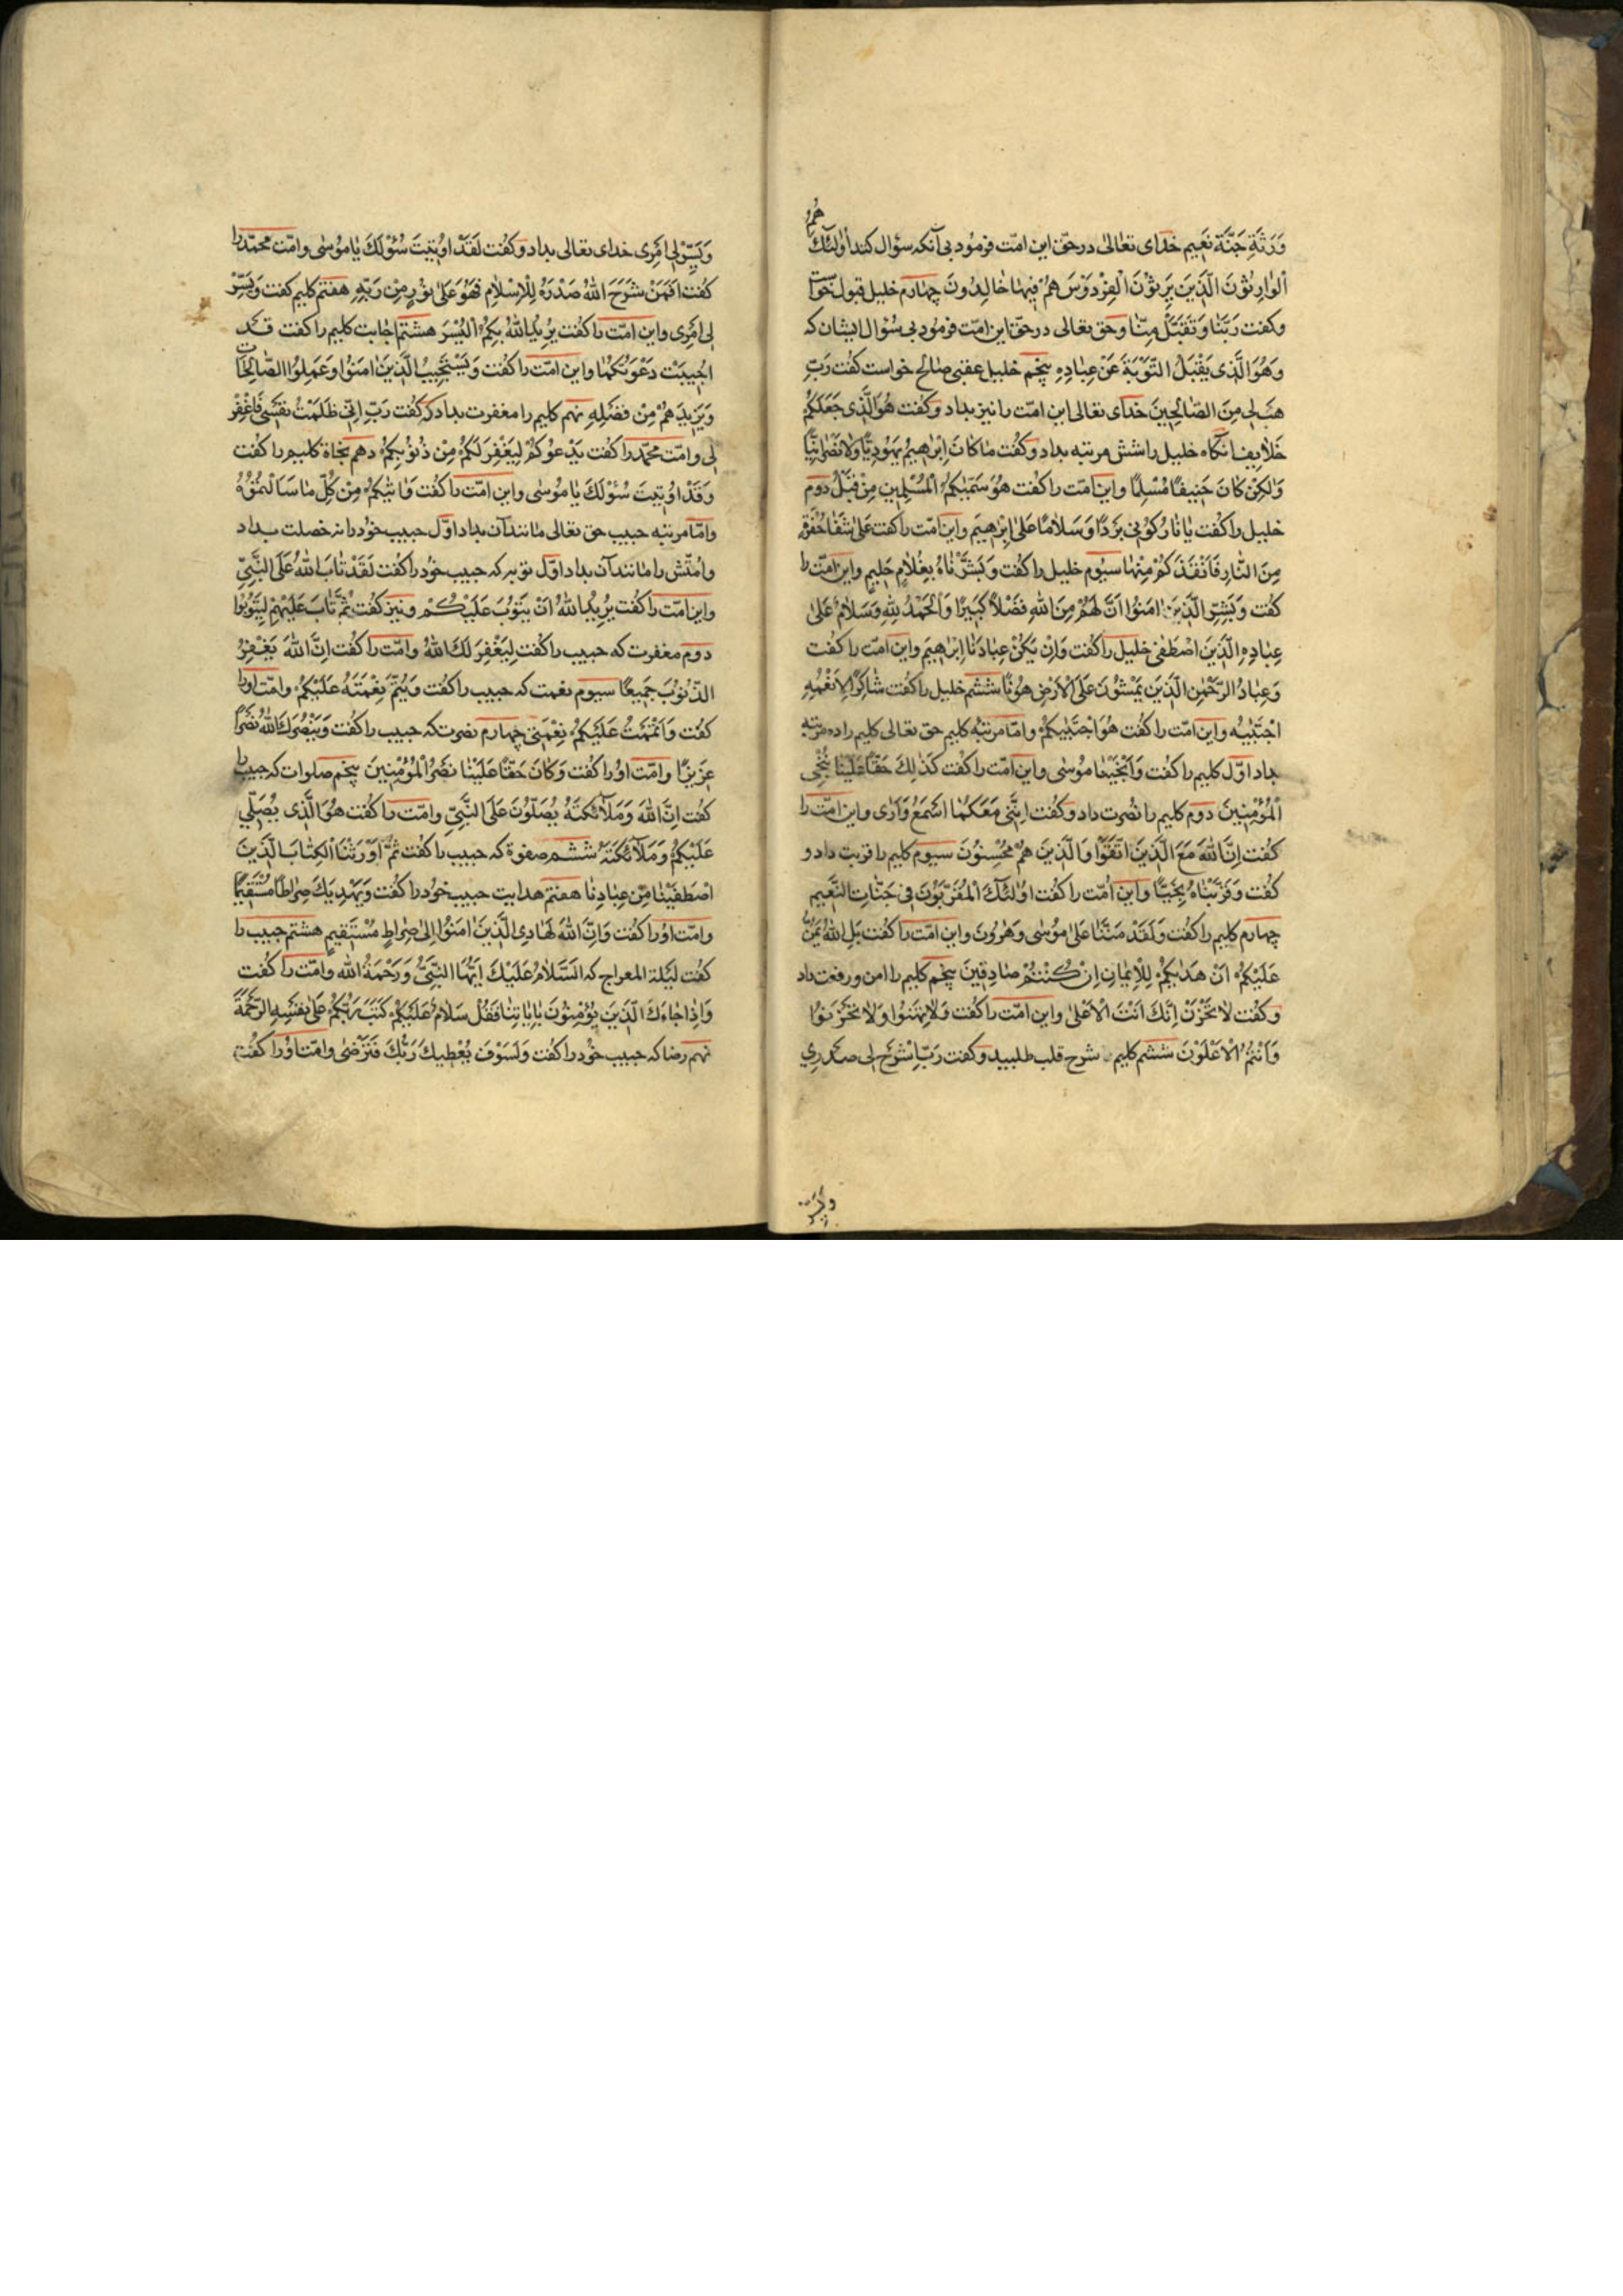 هُمُ
وَرَثَةِ جَنَّةِ نَعِيم خدای تعالی در حقّ این امّت فرمود بی آنکه سؤال کند اُولٰئِكَ
اَلْوَارِثُونَ الَّذِينَ يَرِثُونَ الْفِرْدَوْسَ هُمْ فِيهَا خَالِدُونَ چهارم خلیل قبول خواست
وکفت رَبَّنَا وَتَقَبَّلْ مِنَّا وحق تعالی در حقّ این امّت فرمود بی سُؤال ایشان که
وَهُوَ الَّذِی يَقْبَلُ التَّوْبَةَ عَنْ عِبَادِهِ پنجم خلیل عقبی صالح خواست کفت رَبِّ
هَبْ لِی مِنَ الصَّالِحِينَ خدای تعالی این امّت را نیز بداد وکفت هُوَ الَّذِی جَعَلَكُمْ
خَلَايِفَ آنکاه خلیل را شش مرتبه بداد وکفت مَا كَانَ اِبْرٰهِيمُ يَهُودِيًّا وَلَا نَصْرَانِيًّا
وَلٰكِنْ كَانَ حَنِيفًا مُسْلِمًا واین امّت را کفت هُوَ سَمّٰيكُمُ الْمُسْلِمِينَ مِنْ قَبْلُ دوم
خلیل را کفت يَا نَارُ كُونِي بَرْدًا وَسَلَامًا عَلٰى اِبْرٰهِيمَ واین امّت را کفت عَلٰى شَفَا حُفْرَةٍ
مِنَ النَّارِ فَاَنْقَذَكُمْ مِنْهَا سیوم خلیل را کفت وَبَشَّرْنَاهُ بِغُلَامٍ حَلِيمٍ واین امّت را
کفت وَبَشِّرِ الَّذِينَ اٰمَنُوا اَنَّ لَهُمْ مِنَ اللهِ فَضْلًا كَبِيرًا وَالْحَمْدُ لِلّٰهِ وَسَلَامٌ عَلٰى
عِبَادِهِ الَّذِينَ اصْطَفٰى خلیل را کفت وَاِنْ يَكُنْ عِبَادَنَا اِبْرٰهِيمَ واین امّت را کفت
وَعِبَادُ الرَّحْمٰنِ الَّذِينَ يَمْشُونَ عَلَى الْاَرْضِ هَوْنًا ششم خلیل را کفت شَاكِرًا لِاَنْعُمِهِ
اجْتَبٰيهُ واین امّت را کفت هُوَ اجْتَبٰيكُمْ وامّا مرتبهٔ کلیم حق تعالی کلیم را ده مرتبه
بداد اوّل کلیم را کفت وَاَنْجَيْنَا مُوسٰى واین امّت را کفت كَذٰلِكَ حَقًّا عَلَيْنَا نُنْجِی
الْمُؤْمِنِينَ دوم کلیم را نصرت داد وکفت اِنَّنِی مَعَكُمَا اَسْمَعُ وَاَرٰى واین امّت را
کفت اِنَّ اللهَ مَعَ الَّذِينَ اتَّقَوْا وَالَّذِينَ هُمْ مُحْسِنُونَ سیوم کلیم را قربت داد و
کفت وَقَرَّبْنَاهُ نَجِيًّا واین امّت را کفت اُولٰئِكَ الْمُقَرَّبُونَ فِی جَنَّاتِ النَّعِيمِ
چهارم کلیم را کفت وَلَقَدْ مَنَنَّا عَلٰى مُوسٰى وَهٰرُونَ واین امّت را کفت بَلِ اللهُ يَمُنُّ
عَلَيْكُمْ اَنْ هَدٰيكُمْ لِلْاِيمَانِ اِنْ كُنْتُمْ صَادِقِينَ پنجم کلیم را امن ورفعت داد
وکفت لَا تَحْزَنْ اِنَّكَ اَنْتَ الْاَعْلٰى واین امّت را کفت وَلَا تَهِنُوا وَلَا تَحْزَنُوا
وَاَنْتُمُ الْاَعْلَوْنَ ششم کلیم شرح قلب طلبید وکفت رَبِّ اشْرَحْ لِی صَدْرِي
ویسّر
وَيَسِّرْ لِی اَمْرِی خدای تعالی بداد وکفت لَقَدْ اُوتِيتَ سُؤْلَكَ يَا مُوسٰى وامّت محمّد را
کفت اَفَمَنْ شَرَحَ اللهُ صَدْرَهُ لِلْاِسْلَامِ فَهُوَ عَلٰى نُورٍ مِنْ رَبِّهِ هفتم کلیم کفت وَيَسِّرْ
لِی اَمْرِی واین امّت را کفت يُرِيدُ اللهُ بِكُمُ الْيُسْرَ هشتم اجابت کلیم را کفت قَدْ
اُجِيبَتْ دَعْوَتُكُمَا واین امّت را کفت وَيَسْتَجِيبُ الَّذِينَ اٰمَنُوا وَعَمِلُوا الصَّالِحَاتِ
وَيَزِيدُهُمْ مِنْ فَضْلِهِ نهم کلیم را مغفرت بداد که کفت رَبِّ اِنِّی ظَلَمْتُ نَفْسِی فَاغْفِرْ
لِی وامّت محمّد را کفت يَدْعُوكُمْ لِيَغْفِرَ لَكُمْ مِنْ ذُنُوبِكُمْ دهم نجاة کلیم را کفت
وَقَدْ اُوتِيتَ سُؤْلَكَ يَا مُوسٰى واین امّت را کفت وَاٰتٰيكُمْ مِنْ كُلِّ مَا سَاَلْتُمُوهُ
وامّا مرتبه حبیب حق تعالی مانند آن بداد اوّل حبیب خود را نه خصلت بداد
وامّتش را مانند آن بداد اوّل توبه که حبیب خود را کفت لَقَدْ تَابَ اللهُ عَلَى النَّبِيِّ
واین امّت را کفت يُرِيدُ اللهُ اَنْ يَتُوبَ عَلَيْكُمْ ونیز کفت ثُمَّ تَابَ عَلَيْهِمْ لِيَتُوبُوا
دوم مغفرت که حبیب را کفت لِيَغْفِرَ لَكَ اللهُ وامّت را کفت اِنَّ اللهَ يَغْفِرُ
الذُّنُوبَ جَمِيعًا سیوم نعمت که حبیب را کفت وَيُتِمَّ نِعْمَتَهُ عَلَيْكُمْ وامّت او را
کفت وَاَتْمَمْتُ عَلَيْكُمْ نِعْمَتِی چهارم نصرت که حبیب را کفت وَيَنْصُرَكَ اللهُ نَصْرًا
عَزِيزًا وامّت او را کفت وَكَانَ حَقًّا عَلَيْنَا نَصْرُ الْمُؤْمِنِينَ پنجم صلوات که حبیب را
کفت اِنَّ اللهَ وَمَلَائِكَتَهُ يُصَلُّونَ عَلَى النَّبِيِّ وامّت را کفت هُوَ الَّذِی يُصَلِّي
عَلَيْكُمْ وَمَلَائِكَتُهُ ششم صفوة که حبیب را کفت ثُمَّ اَوْرَثْنَا الْكِتَابَ الَّذِينَ
اصْطَفَيْنَا مِنْ عِبَادِنَا هفتم هدایت حبیب خود را کفت وَيَهْدِيَكَ صِرَاطًا مُسْتَقِيمًا
وامّت او را کفت وَاِنَّ اللهَ لَهَادِی الَّذِينَ اٰمَنُوا اِلٰى صِرَاطٍ مُسْتَقِيمٍ هشتم حبیب را
کفت لیلة المعراج که اَلسَّلَامُ عَلَيْكَ اَيُّهَا النَّبِيُّ وَرَحْمَةُ اللهِ وامّت را کفت
وَاِذَا جَاءَكَ الَّذِينَ يُؤْمِنُونَ بِاٰيَاتِنَا فَقُلْ سَلَامٌ عَلَيْكُمْ كَتَبَ رَبُّكُمْ عَلٰى نَفْسِهِ الرَّحْمَةَ
نهم رضا که حبیب خود را کفت وَلَسَوْفَ يُعْطِيكَ رَبُّكَ فَتَرْضٰى وامّت او را کفت